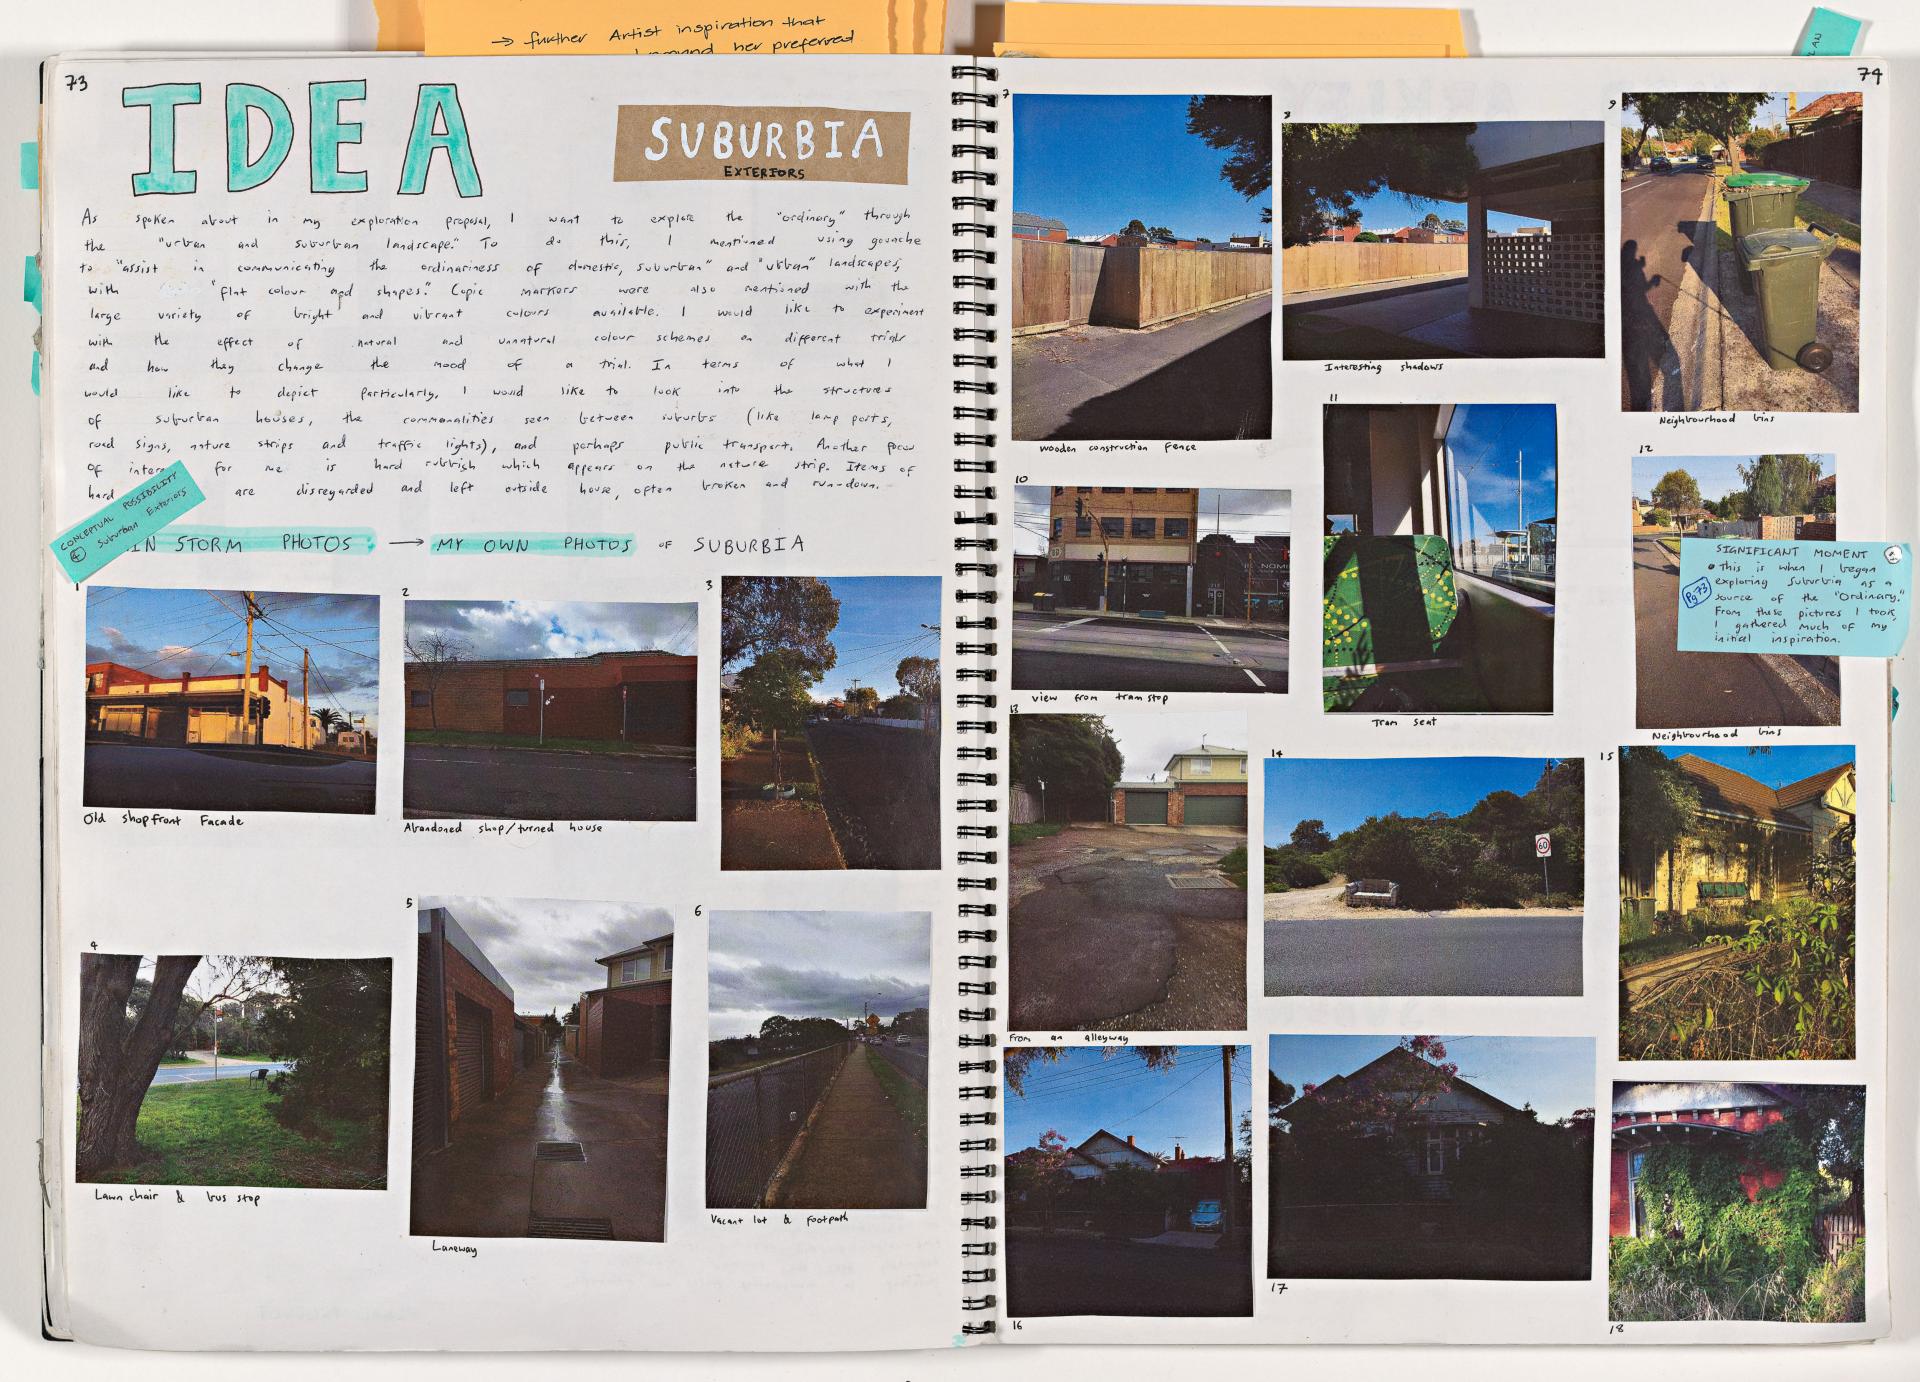 → further Artist inspiration that
her preferred
73
IDEA
SUBURBIA
EXTERIORS
As spoken about in my exploration proposal, I want to explore the "ordinary" through
the "urban and suburban landscape." To do this, I mentioned using gouache
to "assist in communicating the ordinariness of domestic, suburban" and "urban" landscapes,
with "flat colour and shapes." Copic markers were also mentioned with the
large variety of bright and vibrant colours available. I would like to experiment
with the effect of natural and unnatural colour schemes on different trials
and how they change the mood of a trial. In terms of what I
would like to depict particularly, I would like to look into the structures
of suburban houses, the commonalities seen between suburbs (like lamp posts,
road signs, nature strips and traffic lights), and perhaps public transport. Another
of for me is hard rubbish which appears on the nature strip. Items of
hard are disregarded and left outside house, often broken and run-down.
CONCEPTUAL POSSIBILITY
4 Suburban Exteriors
IN STORM PHOTOS: → MY OWN PHOTOS OF SUBURBIA
1
2
3
Old shopfront Facade
Abandoned shop/turned house
4
5
6
Lawn chair & bus stop
Laneway
Vacant lot & footpath
74
7
8
9
Wooden construction Fence
Interesting shadows
Neighbourhood bins
10
11
12
View from tram stop
Tram seat
Neighbourhood bins
SIGNIFICANT MOMENT
• This is when I began
exploring Suburbia as a
source of the "Ordinary."
From these pictures I took,
I gathered much of my
initial inspiration.
Pg 73
13
14
15
60
From an alleyway
16
17
18